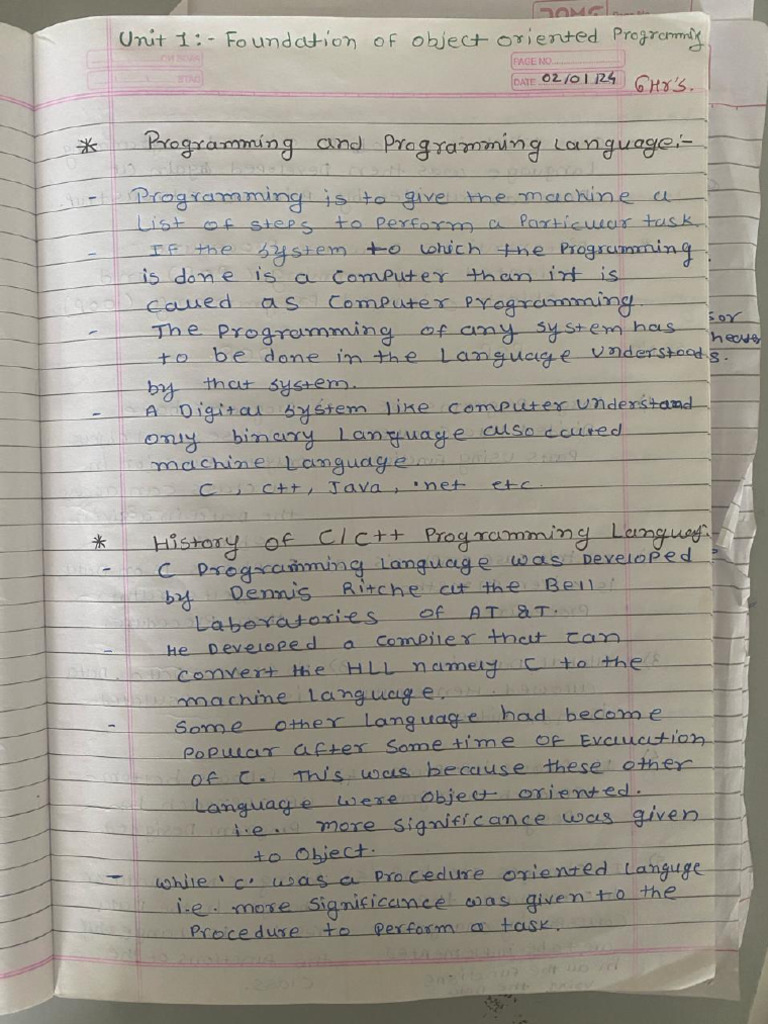 Unit 1:- Foundation of object oriented Programmig
PAGE NO.
DATE 02/01/24
6 Hr's.
* Programming and Programming Language:-
- Programming is to give the machine a
List of steps to perform a Particular task
- If the system to which the Programming
is done is a computer than it is
called as computer programming.
- The programming of any system has
to be done in the Language understood
by that system.
- A Digital system like computer understand
only binary Language also called
machine Language
C, C++, Java, .net etc.
* History of C/C++ Programming Languag:-
- C Programming Language was Developed
by Dennis Ritche at the Bell
Laboratories of AT &T.
- He Developed a compiler that can
convert the HLL namely C to the
machine Language.
- Some other Language had become
Popular after some time of Evaluation
of C. This was because these other
Language were object oriented.
i.e. more significance was given
to object.
- while 'c' was a Procedure oriented Languge
i.e. more significance was given to the
Procedure to perform a task.